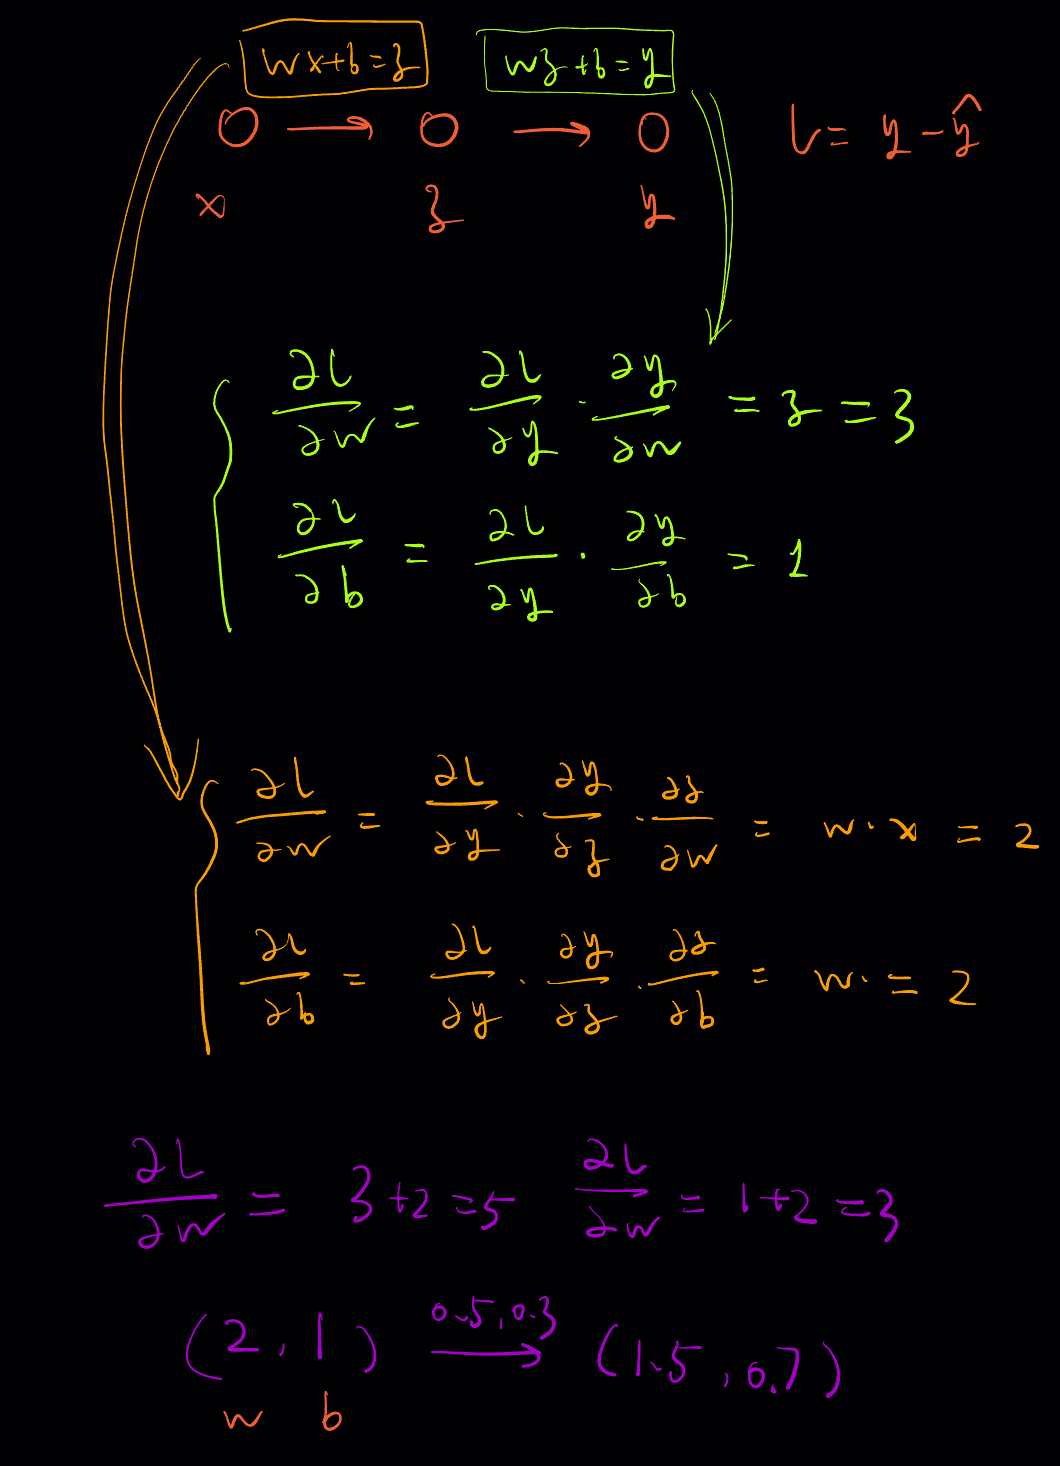 wx+b=z wz+b=y
x → z → y l = y - ŷ
∂l/∂w = ∂l/∂y · ∂y/∂w = z = 3
∂l/∂b = ∂l/∂y · ∂y/∂b = 1
∂l/∂w = ∂l/∂y · ∂y/∂z · ∂z/∂w = w·x = 2
∂l/∂b = ∂l/∂y · ∂y/∂z · ∂z/∂b = w· = 2
∂l/∂w = 3+2=5 ∂l/∂w = 1+2=3
(2, 1) 0.5, 0.3 → (1.5, 0.7)
w b